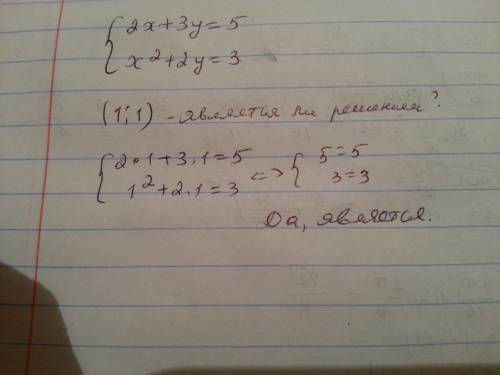 { 2x+3y=5
x²+2y=3
(1;1) - является ли решением?
{ 2·1+3·1=5 <=> { 5=5
1²+2·1=3 3=3
Да, является.